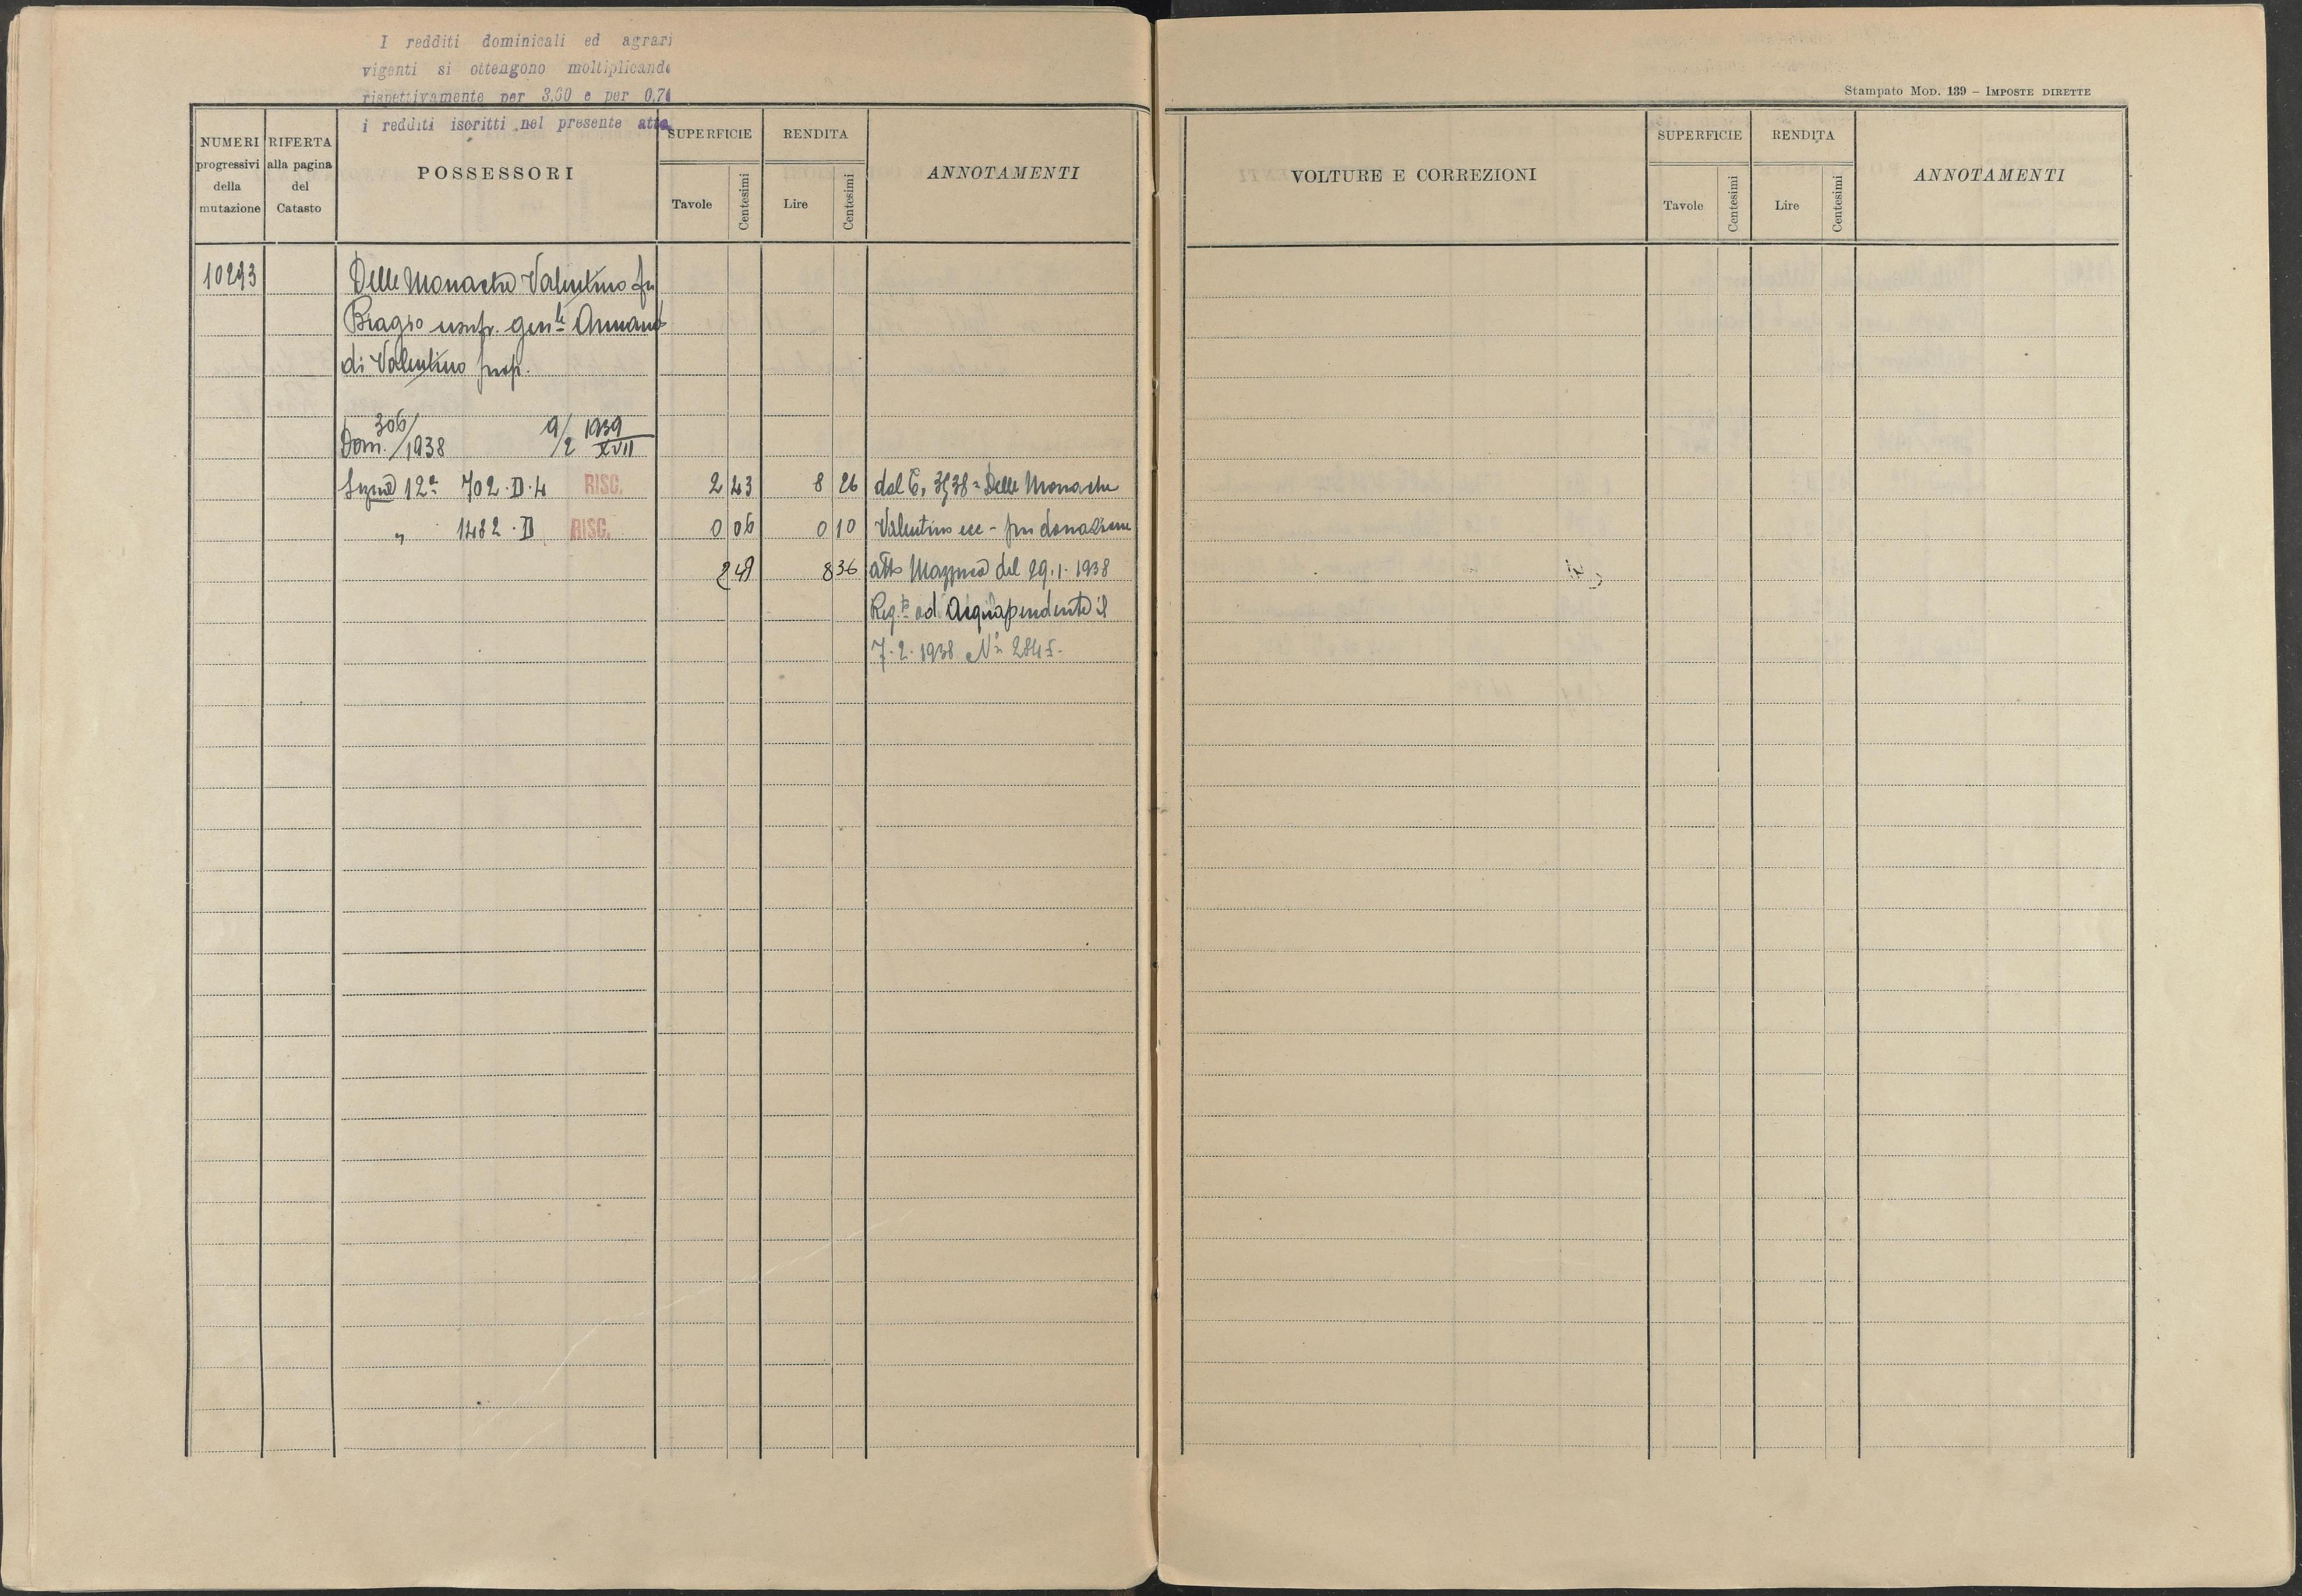 I redditi dominicali ed agrari
vigenti si ottengono moltiplicando
rispettivamente per 3,60 e per 0,71
i redditi iscritti nel presente atto
Stampato MOD. 139 – IMPOSTE DIRETTE
NUMERI progressivi della mutazione
RIFERTA alla pagina del Catasto
POSSESSORI
SUPERFICIE
Tavole
Centesimi
RENDITA
Lire
Centesimi
ANNOTAMENTI
VOLTURE E CORREZIONI
SUPERFICIE
Tavole
Centesimi
RENDITA
Lire
Centesimi
ANNOTAMENTI
10293 Delle Monache Valentino fu
Biagio usufr. gen.le Armando
di Valentino prop.
Dom. 306/1938 9/2 1939 XVII
Sezne 12a 702.D.4 RISC. 2 43 8 26 dal C, 3538 = Delle Monache
" 1482.D RISC. 0 06 0 10 Valentino ecc - per donazione
2 49 8 36 atto del 29.1.1938
Reg.to ad Acquapendente il
7.2.1938 N°